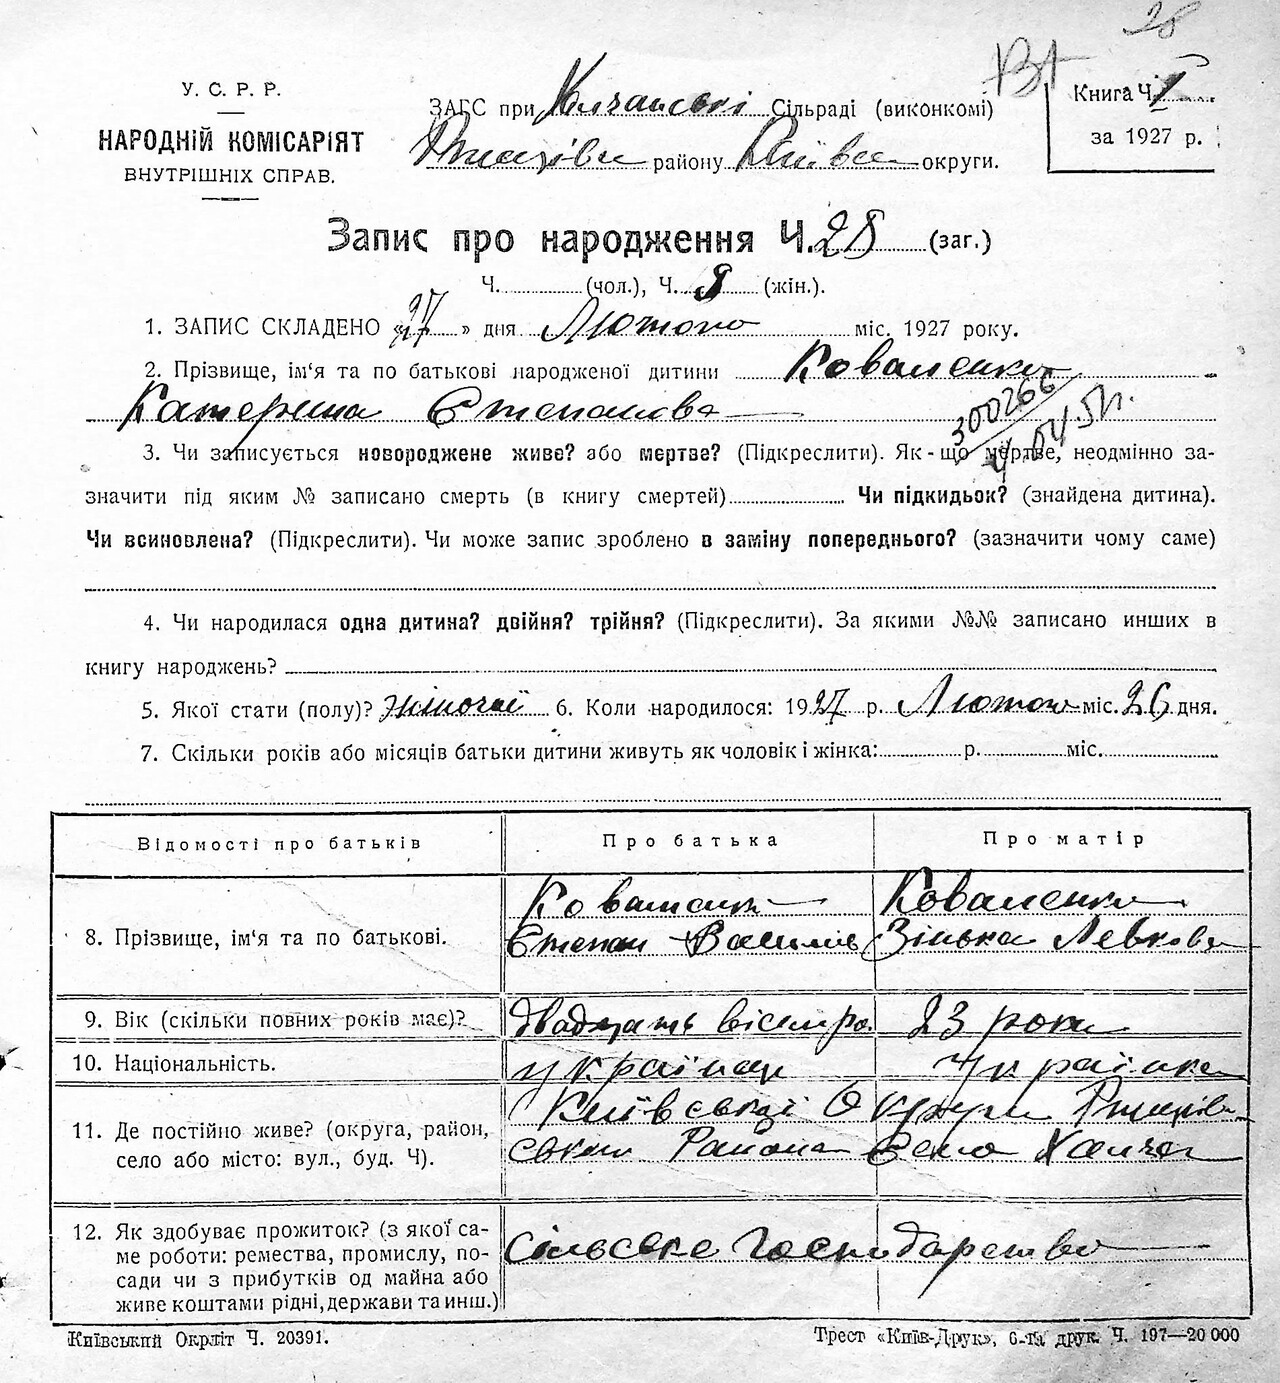 28
У. С. Р. Р.
НАРОДНІЙ КОМІСАРІЯТ
ВНУТРІШНІХ СПРАВ.
ЗАГС при Сільраді (виконкомі)
Ржищівськ району Київськ округи.
Книга Ч. I
за 1927 р.
Запис про народження Ч. 28 (заг.)
Ч. (чол.), Ч. (жін.).
1. ЗАПИС СКЛАДЕНО «27» дня Лютого міс. 1927 року.
2. Прізвище, ім'я та по батькові народженої дитини Коваленко
Катерина Степанова
300266
3. Чи записується новороджене живе? або мертве? (Підкреслити). Як-що мертве, неодмінно за-
значити під яким № записано смерть (в книгу смертей) Чи підкидьок? (знайдена дитина).
Чи всиновлена? (Підкреслити). Чи може запис зроблено в заміну попереднього? (зазначити чому саме)
4. Чи народилася одна дитина? двійня? трійня? (Підкреслити). За якими №№ записано инших в
книгу народжень?
5. Якої стати (полу)? жіночої 6. Коли народилося: 1927 р. Лютого міс. 26 дня.
7. Скільки років або місяців батьки дитини живуть як чоловік і жінка: р. міс.
Відомості про батьків Про батька Про матір
8. Прізвище, ім'я та по батькові.
Коваленко
Степан Василів
Коваленко
Зінька Левкова
9. Вік (скільки повних років має)? двадцять вісім ро. 23 роки
10. Національність. українец українка
11. Де постійно живе? (округа, район,
село або місто: вул., буд. Ч).
Київської Округи Ржищів-
ського Района Село Халча
12. Як здобуває прожиток? (з якої са-
ме роботи: ремества, промислу, по-
сади чи з прибутків од майна або
живе коштами рідні, держави та инш.)
сільське господарство
Київський Окрліт Ч. 20391.
Трест «Київ-Друк», 6-та друк. Ч. 197—20 000